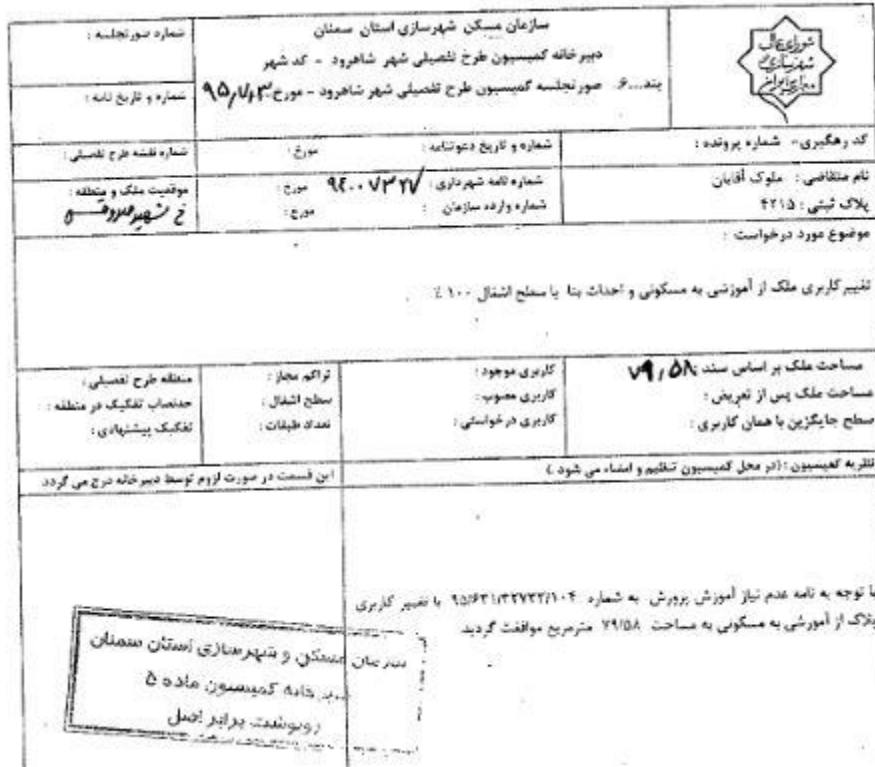 شورای عالی
شهرسازی و
معماری ایران
سازمان مسکن شهرسازی استان سمنان
دبیرخانه کمیسیون طرح تفصیلی شهر شاهرود - کد شهر
بند...۶. صورتجلسه کمیسیون طرح تفصیلی شهر شاهرود - مورخ ۹۵٫۷٫۳
شماره صورتجلسه :
شماره و تاریخ نامه :
کد رهگیری- شماره پرونده :
شماره و تاریخ دعوتنامه : مورخ :
شماره نقشه طرح تفصیلی :
نام متقاضی : ملوک آقایان
پلاک ثبتی : ۴۲۱۵
شماره نامه شهرداری : مورخ :
شماره وارده سازمان : مورخ :
موقعیت ملک و منطقه :
خ شهید
موضوع مورد درخواست :
تغییر کاربری ملک از آموزشی به مسکونی و احداث بنا با سطح اشغال ۱۰۰ ٪
مساحت ملک بر اساس سند : ۷۹٫۵۸
مساحت ملک پس از تعریض :
سطح جایگزین با همان کاربری :
کاربری موجود :
کاربری مصوب :
کاربری درخواستی :
تراکم مجاز :
سطح اشغال :
تعداد طبقات :
منطقه طرح تفصیلی :
حدنصاب تفکیک در منطقه :
تفکیک پیشنهادی :
نظریه کمیسیون : (در محل کمیسیون تنظیم و امضاء می شود )
این قسمت در صورت لزوم توسط دبیرخانه درج می گردد
با توجه به نامه عدم نیاز آموزش پرورش به شماره ۹۵/۶۳۱/۳۲۷۳۲/۱۰۴ با تغییر کاربری
پلاک از آموزشی به مسکونی به مساحت ۷۹/۵۸ مترمربع موافقت گردید
سازمان مسکن و شهرسازی استان سمنان
دبیرخانه کمیسیون ماده ۵
رونوشت برابر اصل